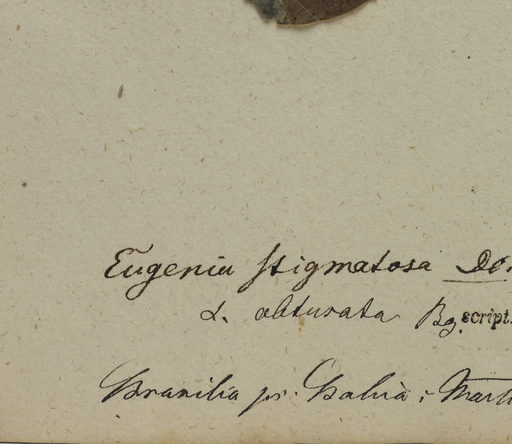 Eugenia stigmatosa DC.
α. obturata Bg. script.
Brasilia pr. Bahia: Marti